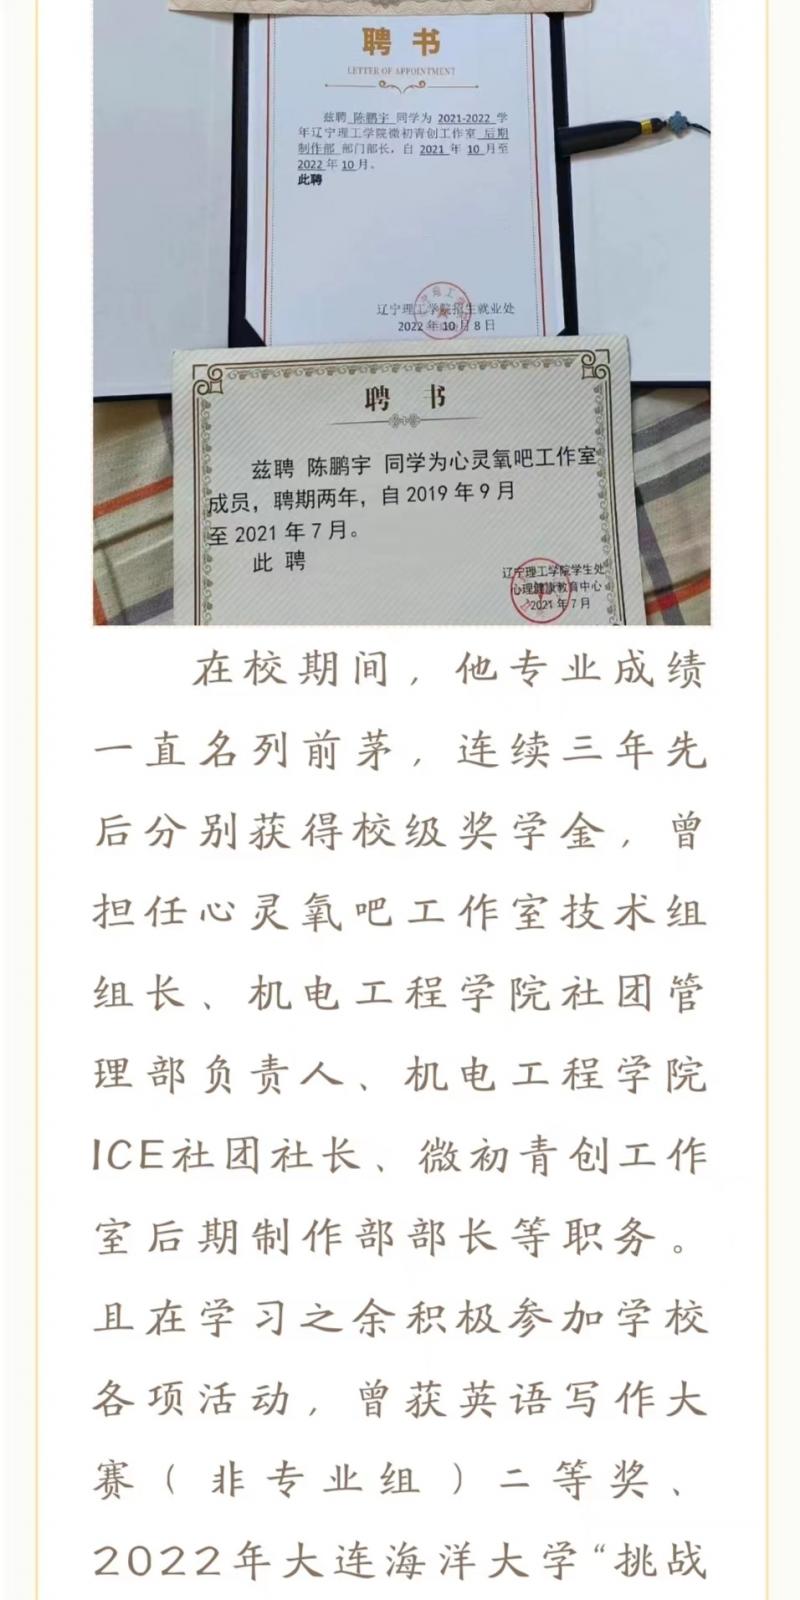 聘 书
LETTER OF APPOINTMENT
兹聘 陈鹏宇 同学为 2021-2022 学
年辽宁理工学院微初青创工作室 后期
制作部 部门部长，自 2021 年 10 月至
2022 年 10 月。
此聘
辽宁理工学院招生就业处
2022 年 10 月 8 日
聘 书
兹聘 陈鹏宇 同学为心灵氧吧工作室
成员，聘期两年，自 2019 年 9 月
至 2021 年 7 月。
此 聘
辽宁理工学院学生处
心理健康教育中心
2021 年 7 月
在校期间，他专业成绩
一直名列前茅，连续三年先
后分别获得校级奖学金，曾
担任心灵氧吧工作室技术组
组长、机电工程学院社团管
理部负责人、机电工程学院
ICE社团社长、微初青创工作
室后期制作部部长等职务。
且在学习之余积极参加学校
各项活动，曾获英语写作大
赛（非专业组）二等奖、
2022年大连海洋大学“挑战